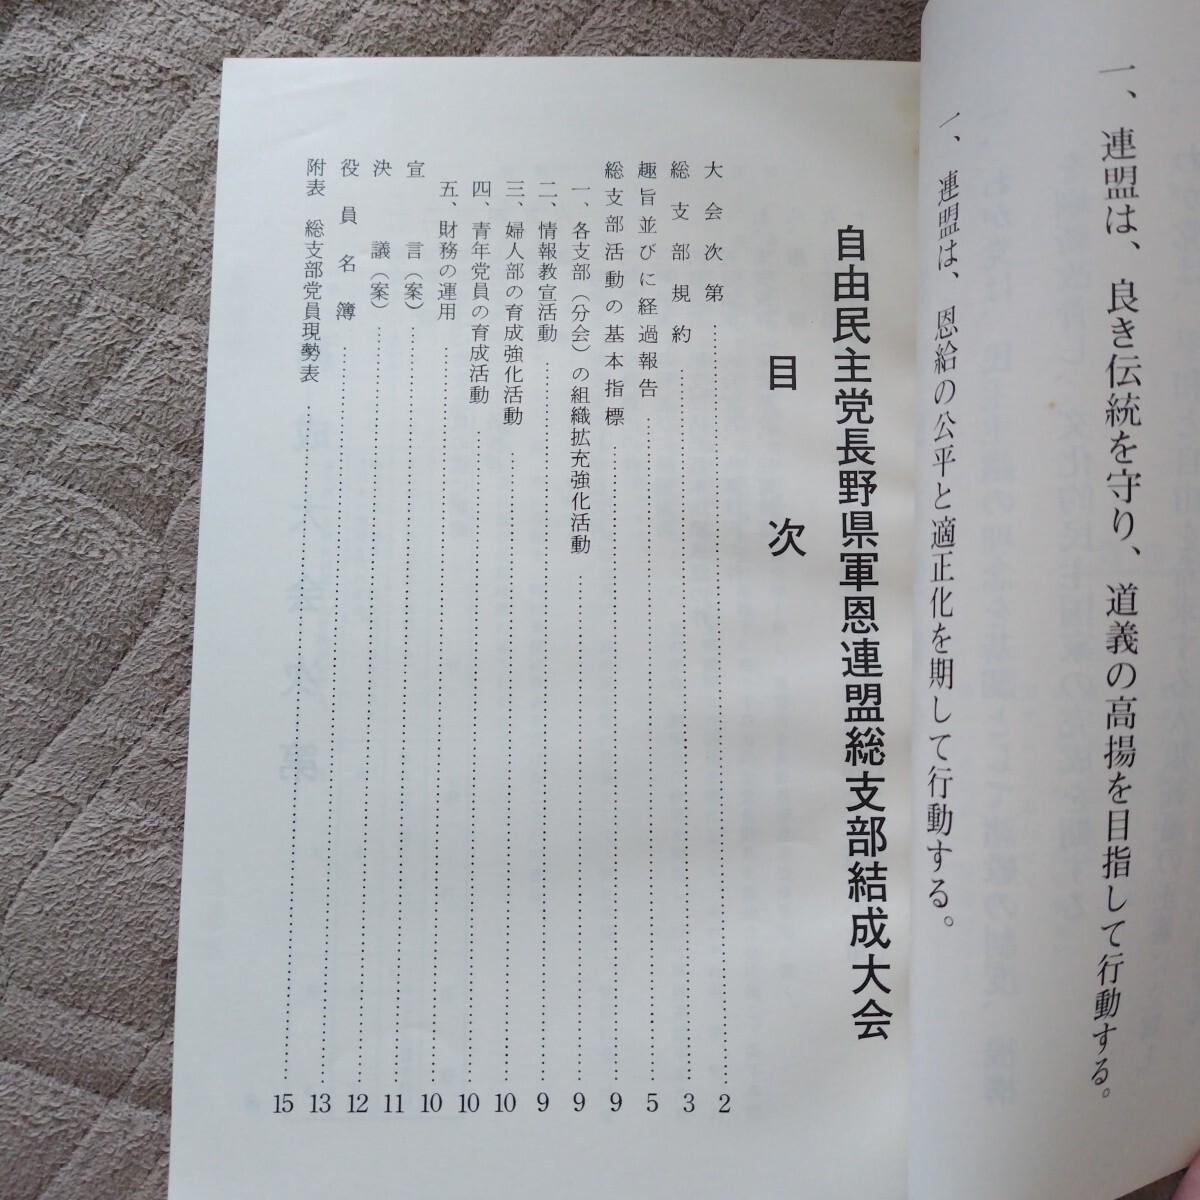 一、連盟は、良き伝統を守り、道義の高揚を目指して行動する。
一、連盟は、恩給の公平と適正化を期して行動する。
自由民主党長野県軍恩連盟総支部結成大会
目次
大会次第……2
総支部規約……3
趣旨並びに経過報告……5
総支部活動の基本指標……9
一、各支部（分会）の組織拡充強化活動……9
二、情報教宣活動……9
三、婦人部の育成強化活動……10
四、青年党員の育成活動……10
五、財務の運用……10
宣言（案）……11
決議（案）……12
役員名簿……13
附表 総支部党員現勢表……15